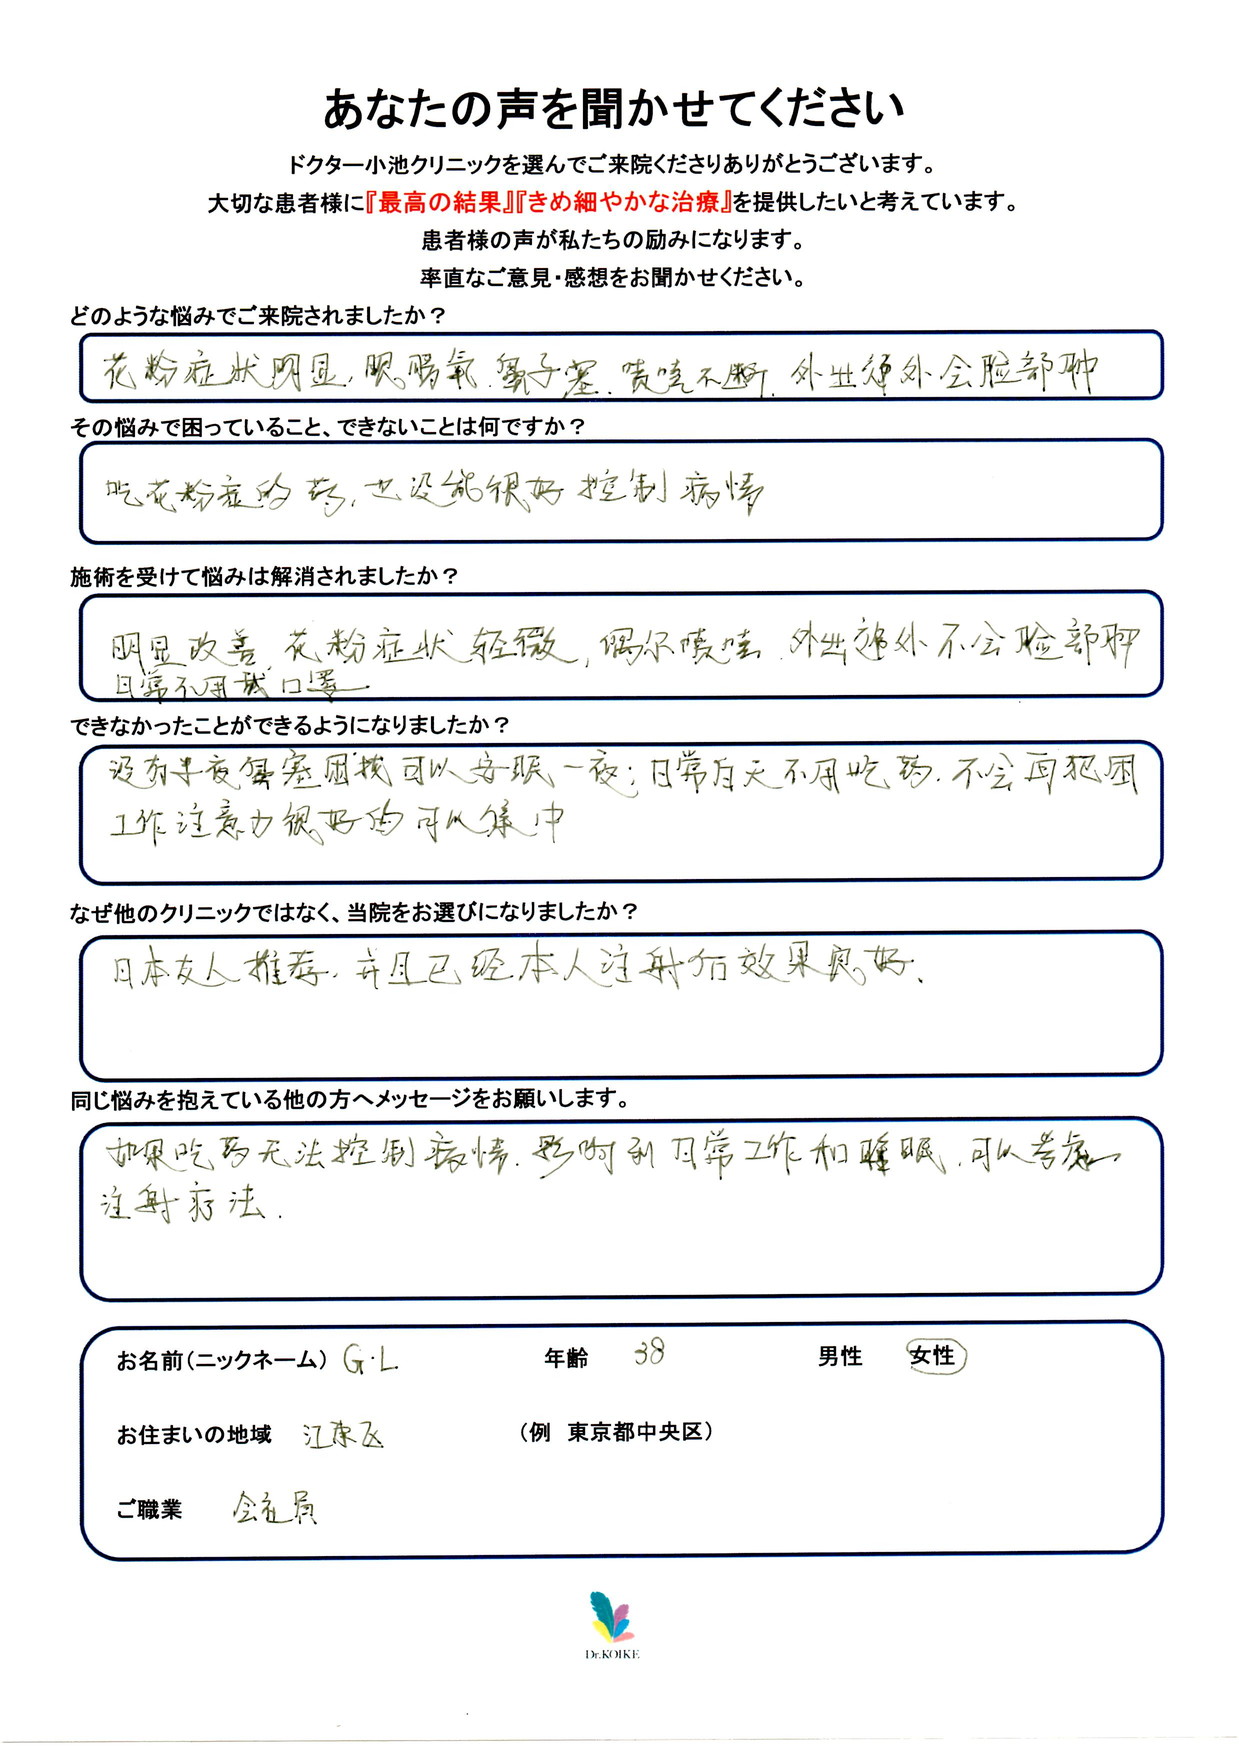 あなたの声を聞かせてください
ドクター小池クリニックを選んでご来院くださりありがとうございます。
大切な患者様に『最高の結果』『きめ細やかな治療』を提供したいと考えています。
患者様の声が私たちの励みになります。
率直なご意見・感想をお聞かせください。
どのような悩みでご来院されましたか？
花粉症状明显,眼 鼻子塞.喷嚏不断.外出郊外会脸部肿
その悩みで困っていること、できないことは何ですか？
吃花粉症的药,也没能很好控制病情
施術を受けて悩みは解消されましたか？
明显改善,花粉症状轻微,偶尔喷嚏.外出郊外不会脸部肿
日常不用戴口罩
できなかったことができるようになりましたか？
没有半夜鼻塞困扰可以安眠一夜;日常白天不用吃药.不会再犯困
工作注意力很好的可以集中
なぜ他のクリニックではなく、当院をお選びになりましたか？
日本友人推荐.并且已经本人注射后效果良好.
同じ悩みを抱えている他の方へメッセージをお願いします。
如果吃药无法控制病情.影响到日常工作和睡眠.可以考虑
注射疗法.
お名前（ニックネーム） G·L 年齢 38 男性 女性
お住まいの地域 江東区 （例 東京都中央区）
ご職業 会社員
Dr.KOIKE